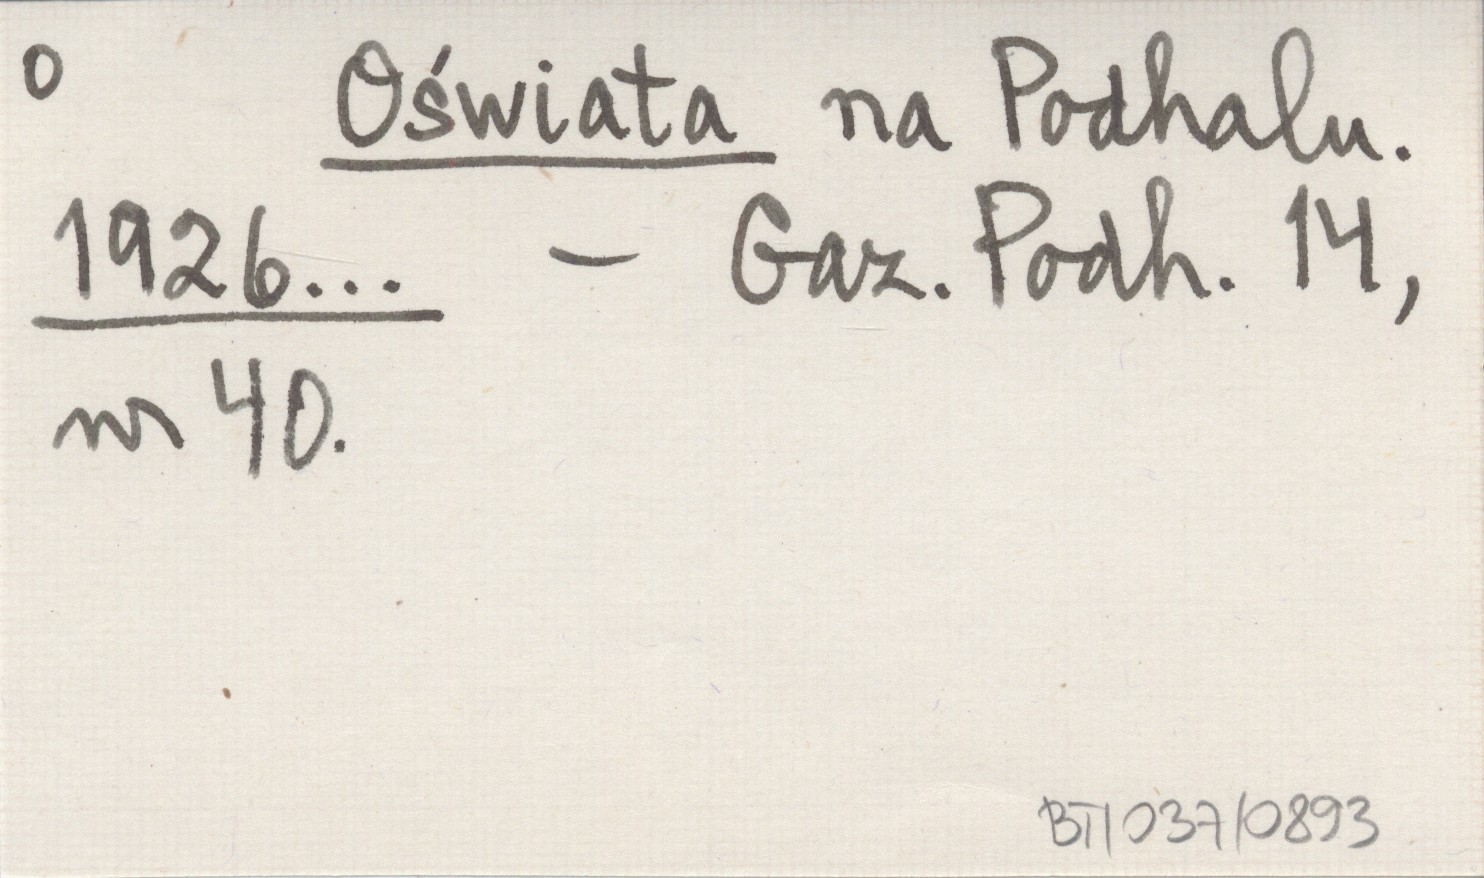 O Oświata na Podhalu.
1926... – Gaz. Podh. 14,
nr 40.
BT/037/0893